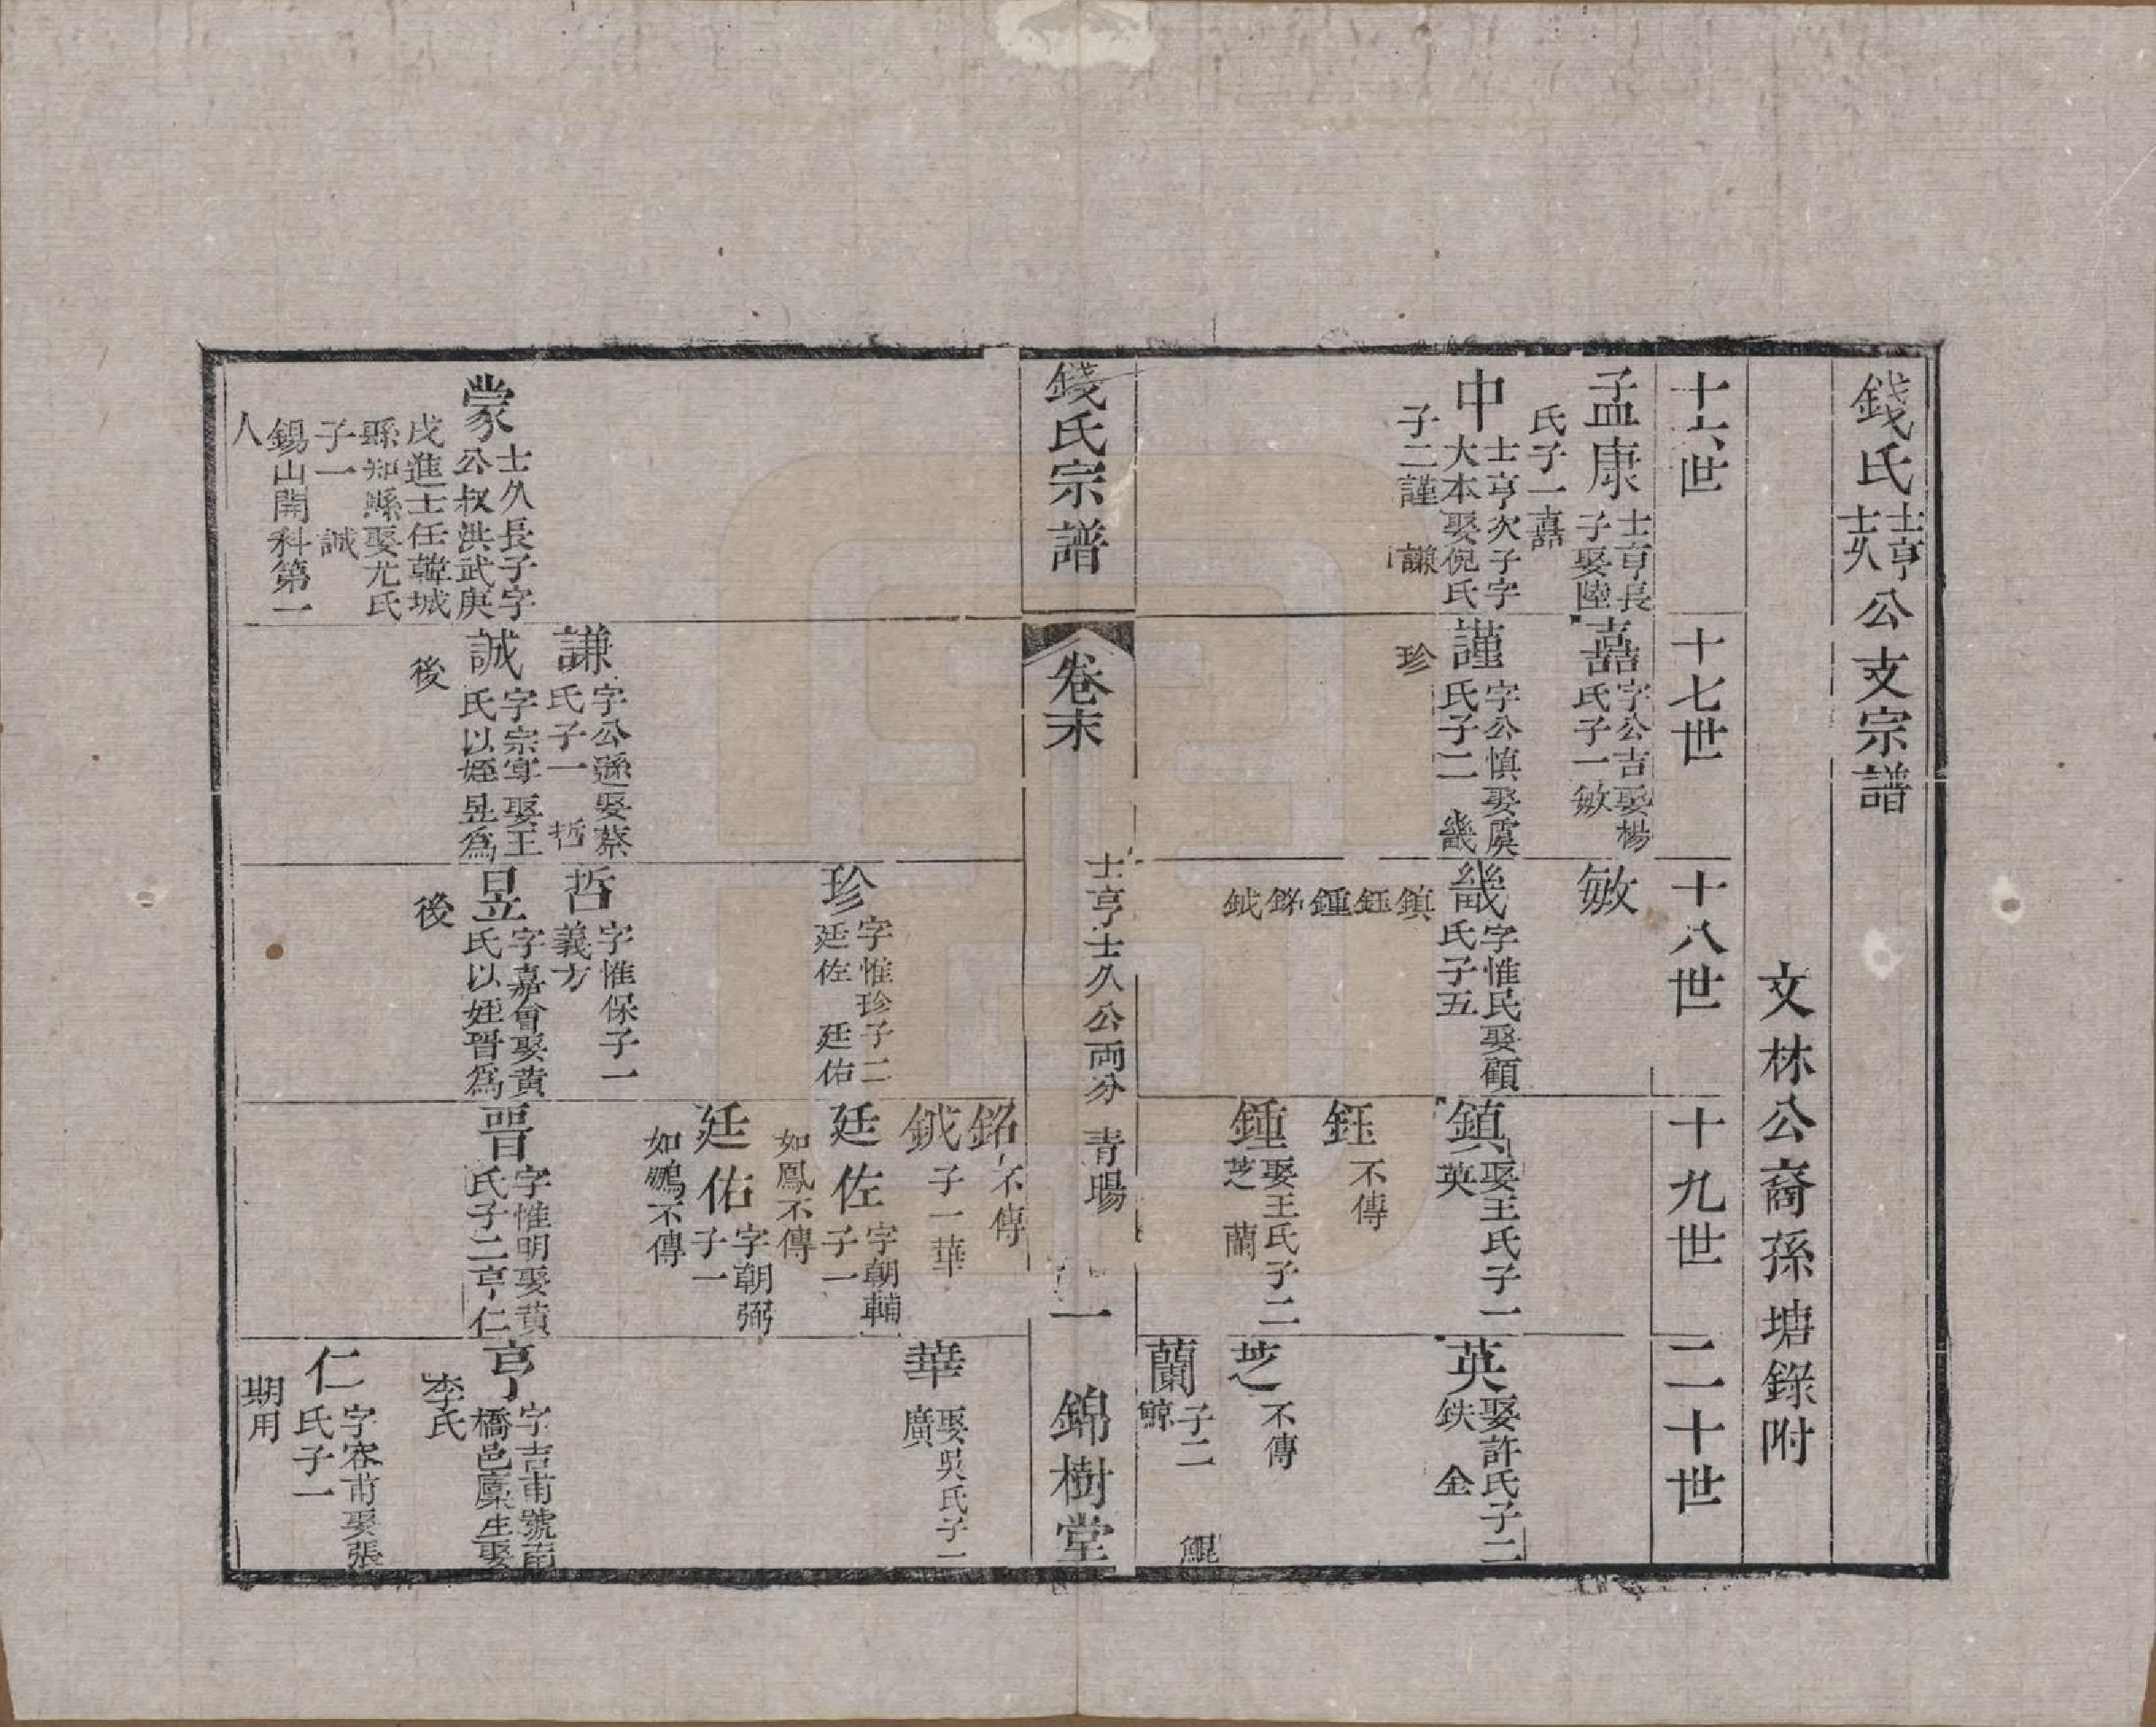 錢氏士亨士久公支宗譜
文林公裔孫塘錄附
十六世
十七世
十八世
十九世
二十世
孟康 士亨長子娶陸氏子一嚞
中 士亨次子字大本娶倪氏子二謹 謙
嚞 字公吉娶楊氏子一敏
謹 字公慎娶虞氏子二 畿 珍
敏
畿 字惟民娶顧氏子五
鎮鈺鍾銘鉞
鎮 娶王氏子一英
鈺 不傳
鍾 娶王氏子二芝 蘭
英 娶許氏子二鈇 金
芝 不傳
蘭 子二鯨 鯤
錢氏宗譜
卷末
士亨士久公兩分 青暘
一
錦樹堂
蒙 士久長子字公叔洪武庚戌進士任韓城縣知縣娶尤氏子一 誠
錫山開科第一人
謙 字公遜娶蔡氏子一 哲
誠 字宗寧娶王氏以姪昱為後
珍 字惟珍子二廷佐 廷佑
哲 字惟保子一義方
昱 字嘉會娶黃氏以姪晉為後
銘 不傳
鉞 子一華
廷佐 字朝輔子一如鳳不傳
廷佑 字朝弼子一如鵬不傳
晉 字惟明娶黃氏子二亨仁
華 娶吳氏子一廣
亨 字吉甫號南橋邑廩生娶李氏
仁 字容甫娶張氏子一期用